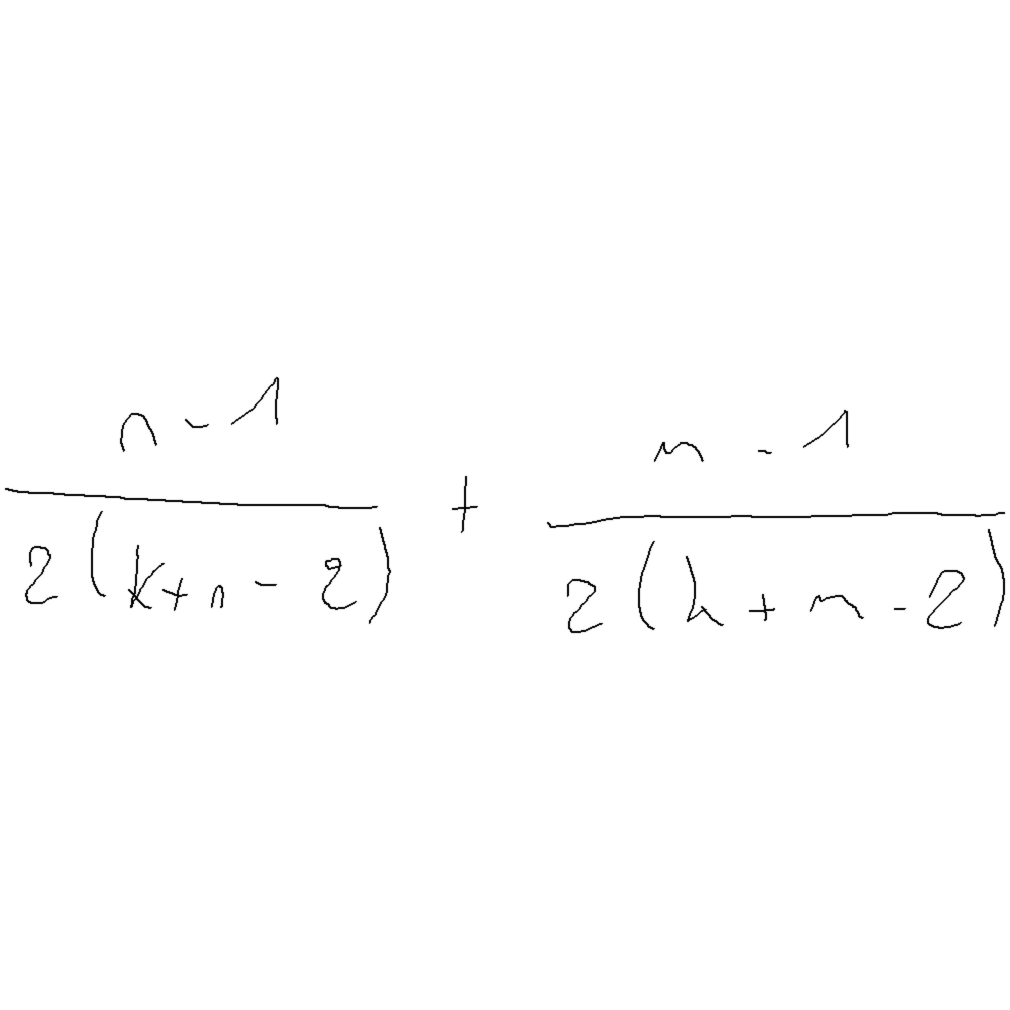 \frac{n-1}{2(k+n-2)} + \frac{m-1}{2(h+m-2)}